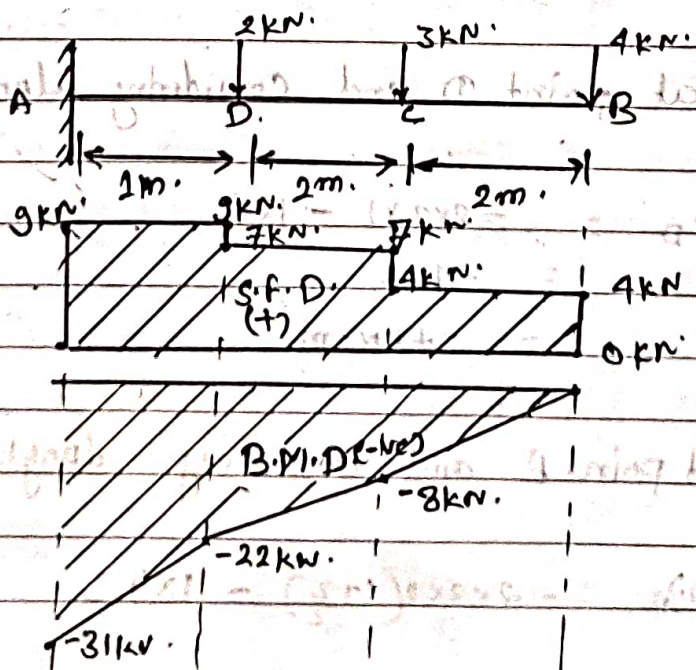 2kN. 3kN. 4kN.
A D. C B
1m. 2m. 2m.
9kN. 9kN. 7kN. 7kN.
S.F.D. 4kN. 4kN
(+) 0kN.
B.M.D(-ve)
-8kN.
-22kN.
-31kN.